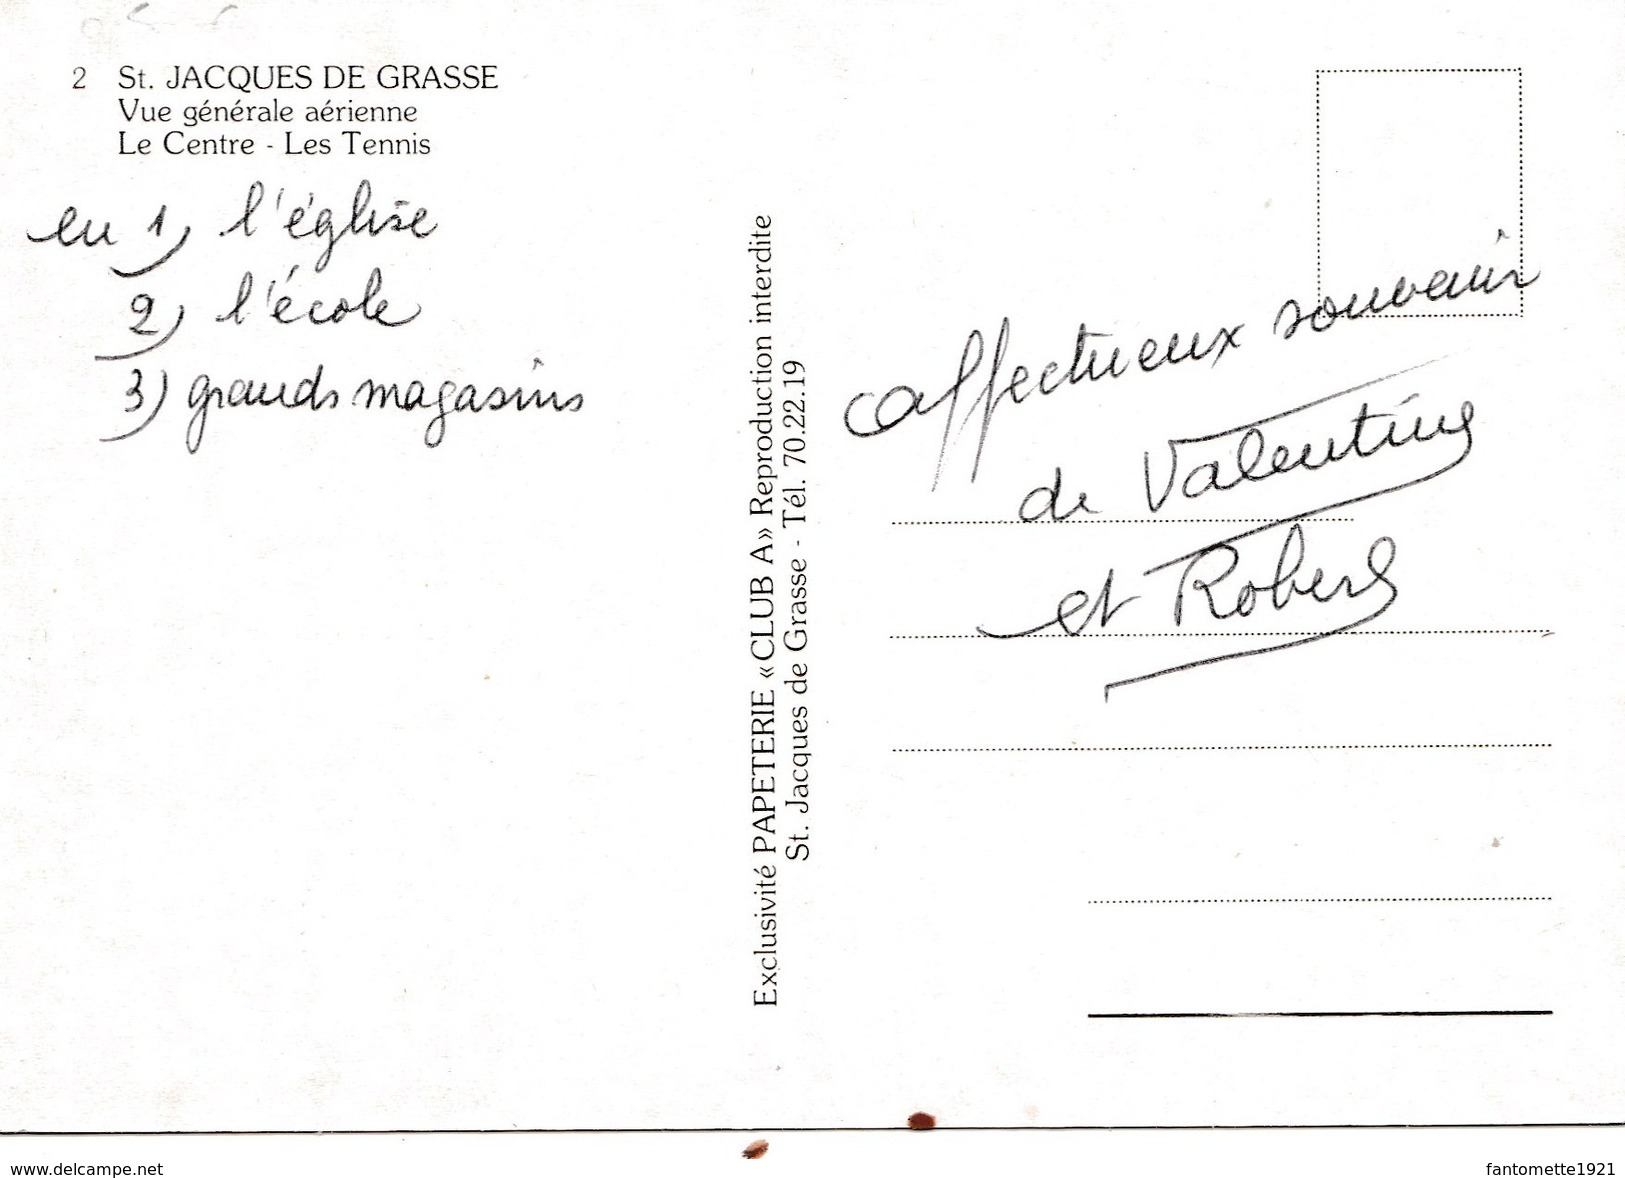 2 St. JACQUES DE GRASSE
Vue générale aérienne
Le Centre - Les Tennis
en 1) l'église
2) l'école
3) grands magasins
Exclusivité PAPETERIE «CLUB A» Reproduction interdite
St. Jacques de Grasse - Tél. 70.22.19
affectueux souvenir
de Valentine
et Robert
www.delcampe.net
fantomette1921